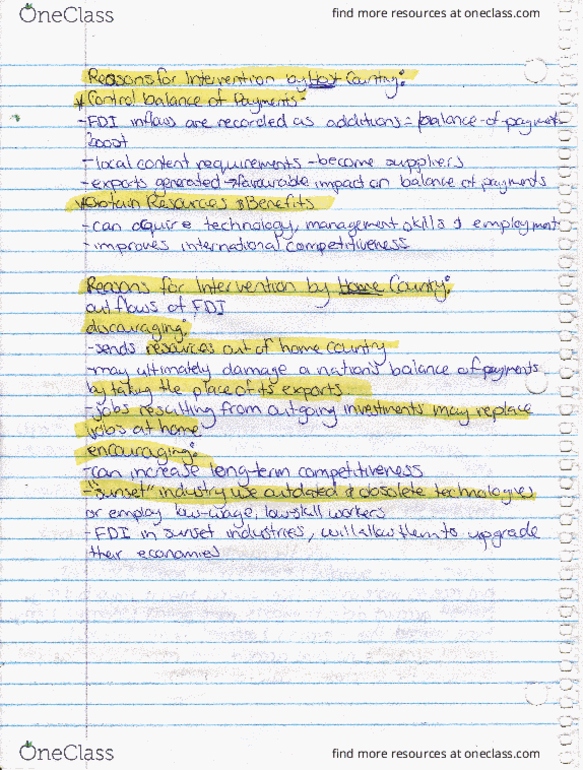 OneClass
find more resources at oneclass.com
Reasons for Intervention by Host Country:
*Control balance of Payments-
-FDI inflows are recorded as additions = balance-of-payments
boost
-local content requirements -become suppliers
-exports generated→favourable impact on balance of payments
*Obtain Resources & Benefits
-can aquire technology, management skills & employment
-improves international competitiveness
Reasons for Intervention by Home Country:
outflows of FDI
discouraging:
-sends resources out of home country
-may ultimately damage a nation's balance of payments
by taking the place of its exports
-jobs resulting from outgoing investments may replace
jobs at home
encouraging:
-can increase long-term competitiveness
-"sunset" industry use outdated & obsolete technologies
or employ low-wage, low skill workers
-FDI in sunset industries, will allow them to upgrade
their economies
OneClass
find more resources at oneclass.com